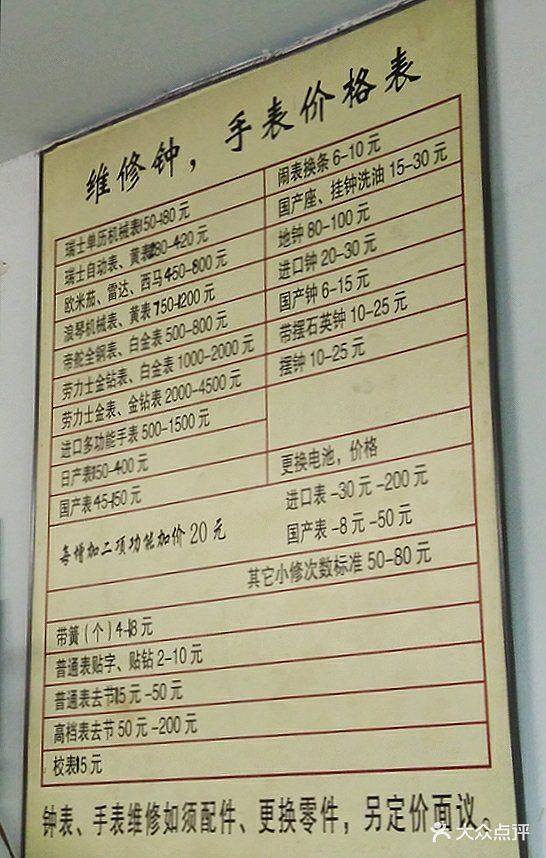 维修钟，手表价格表
瑞士单历机械表150-180元
瑞士自动表、黄表280-420元
欧米茄、雷达、西马450-800元
浪琴机械表、黄表750-1200元
帝舵全钢表、白金表500-800元
劳力士金钻表、白金表1000-2000元
劳力士金表、金钻表2000-4500元
进口多功能手表500-1500元
日产表150-400元
国产表45-150元
闹表换条6-10元
国产座、挂钟洗油15-30元
地钟80-100元
进口钟20-30元
国产钟6-15元
带摆石英钟10-25元
摆钟10-25元
更换电池，价格
进口表-30元-200元
国产表-8元-50元
每增加二项功能加价20元
其它小修次数标准50-80元
带簧（个）4-18元
普通表贴字、贴钻2-10元
普通表去节15元-50元
高档表去节50元-200元
校表15元
钟表、手表维修如须配件、更换零件，另定价面议。
大众点评